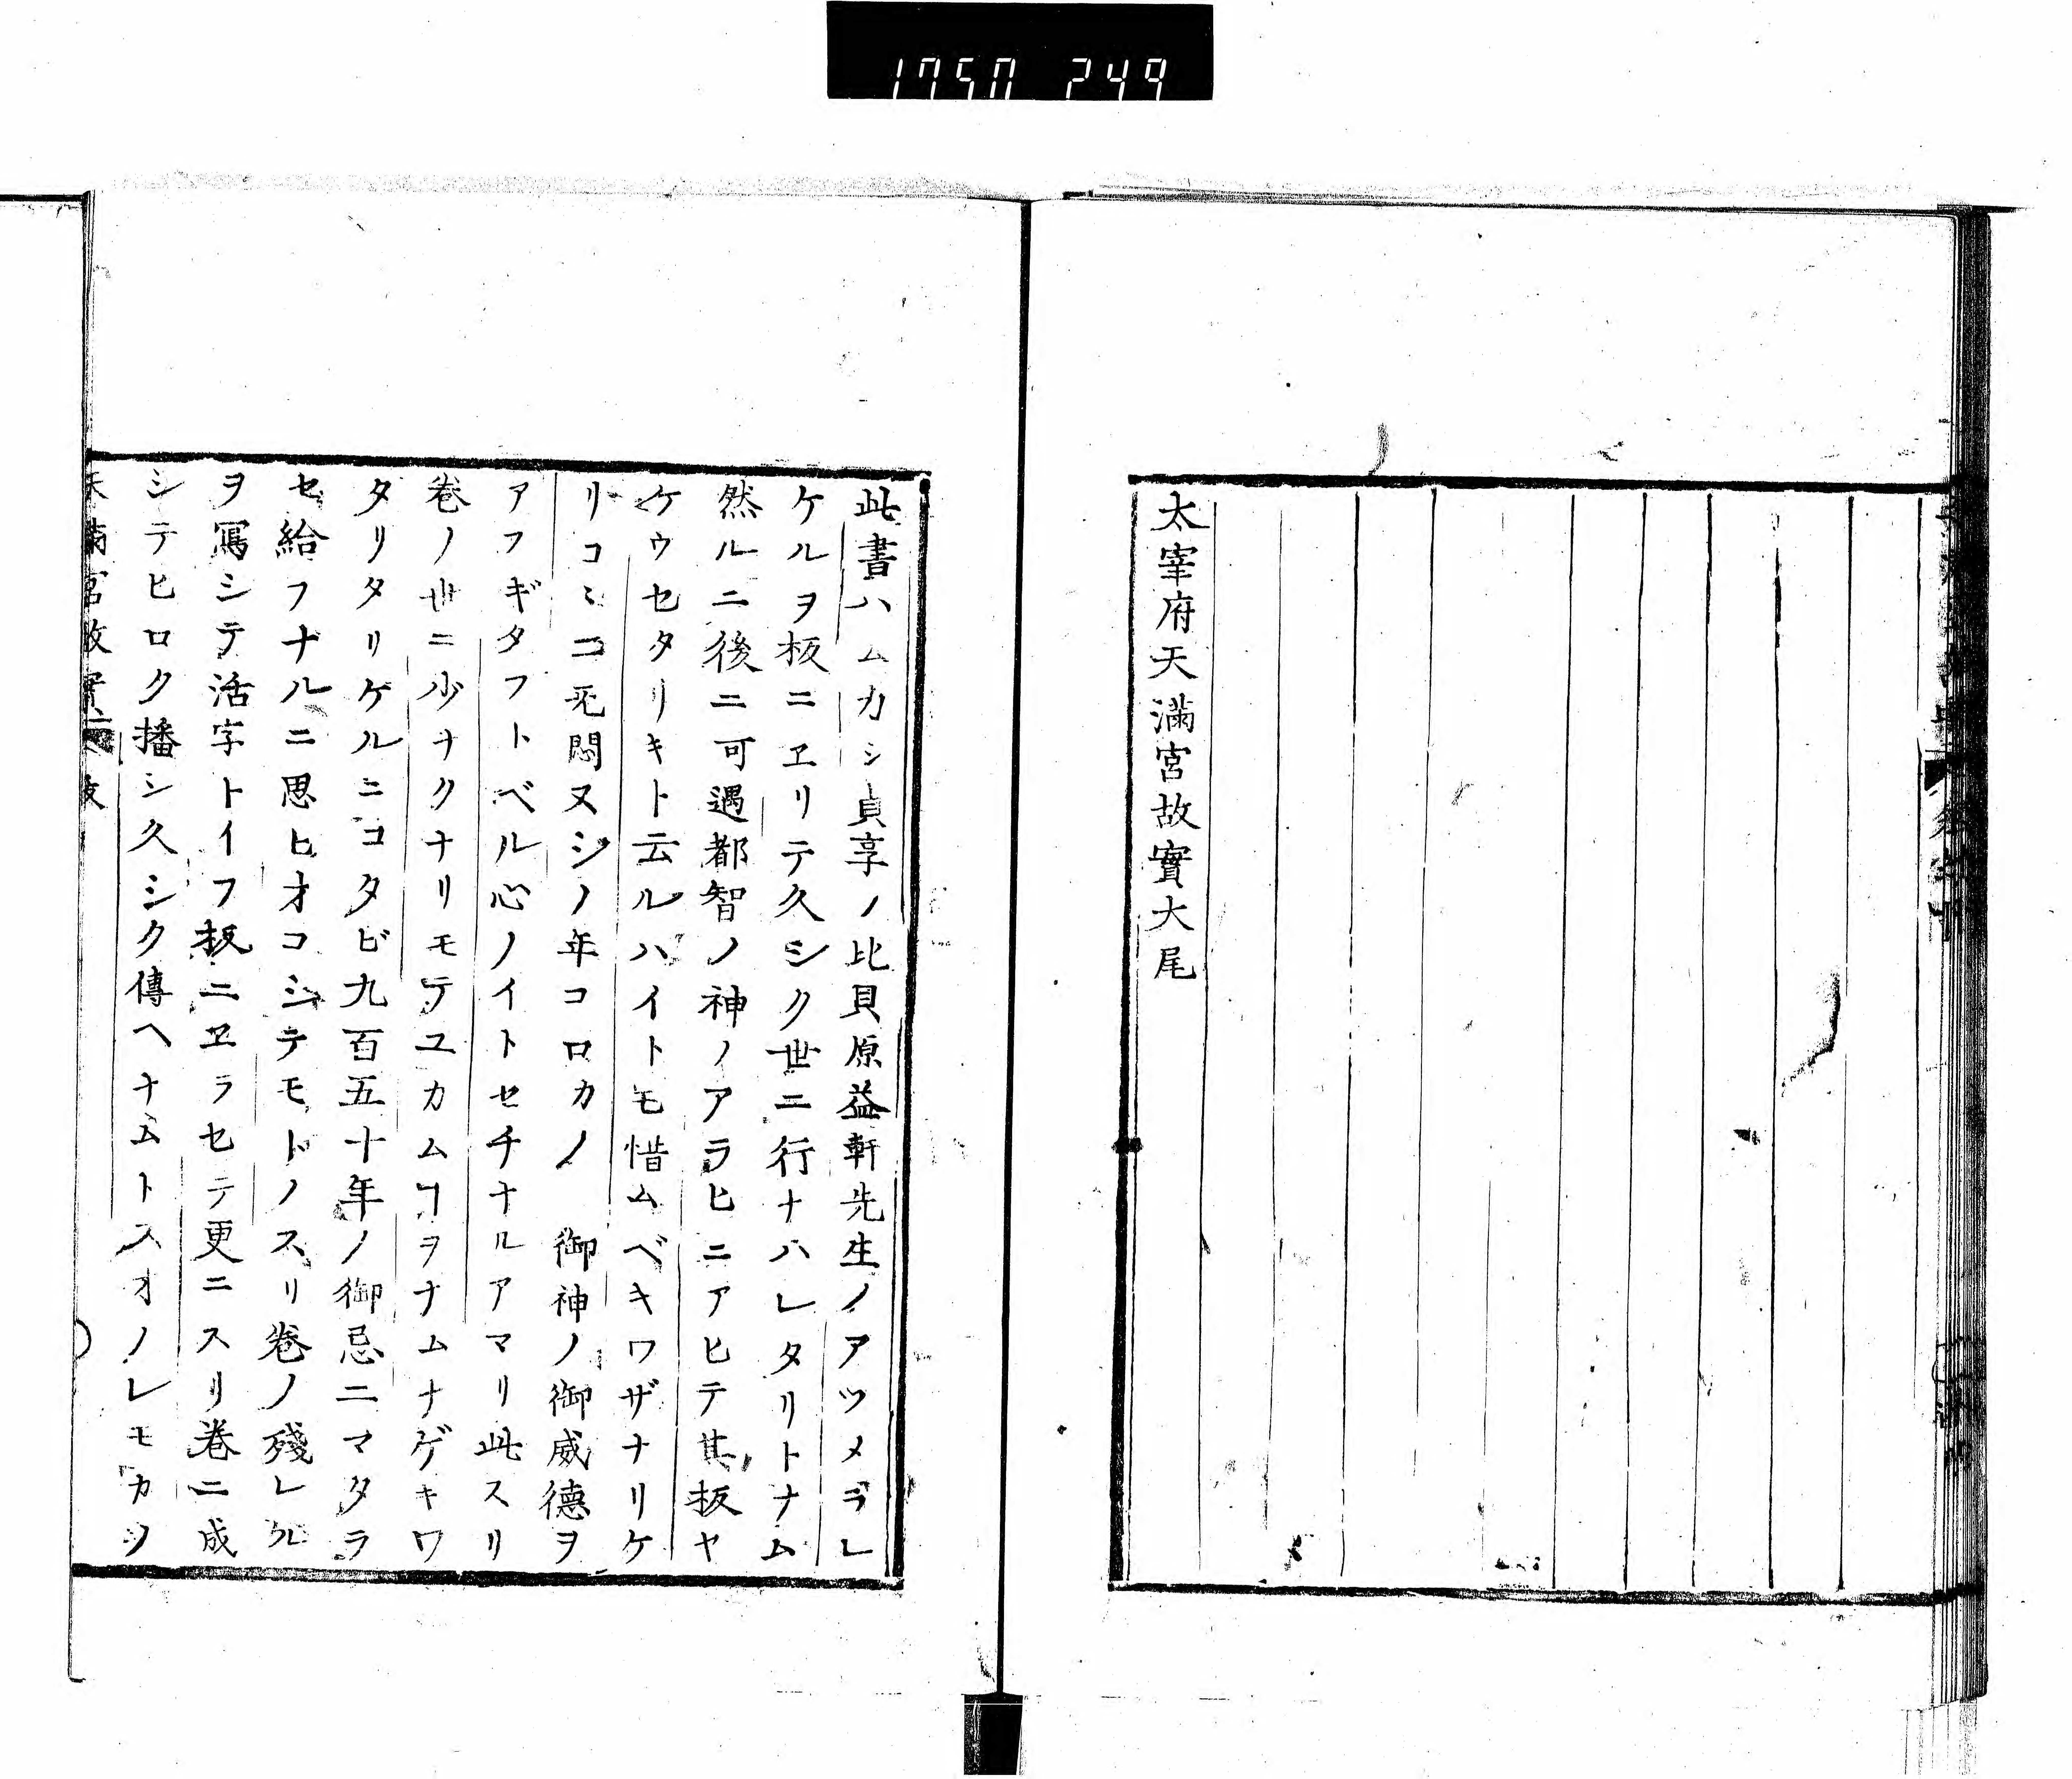 1750 249
太宰府天滿宮故實大尾
此書ハムカシ貞享ノ比貝原益軒先生ノアツメラレ
ケルヲ板ニヱリテ久シク世ニ行ナハレタリトナム
然ルニ後ニ可遇都智ノ神ノアラヒニアヒテ其板ヤ
ケウセタリキト云ルハイトモ惜ムベキワザナリケ
リコヽニ兂悶ヌシノ年コロカノ 御神ノ御威德ヲ
アフギタフトベル心ノイトセチナルアマリ此スリ
巻ノ世ニ少ナクナリモテユカムヿヲナムナゲキワ
タリタリケルニコタビ九百五十年ノ御忌ニマタラ
セ給フナルニ思ヒオコシテモトノスリ巻ノ殘レル
ヲ寫シテ活字トイフ板ニヱラセテ更ニスリ巻ニ成
シテヒロク播シ久シク傳ヘナムトスオノレモカシ
天滿宮故實